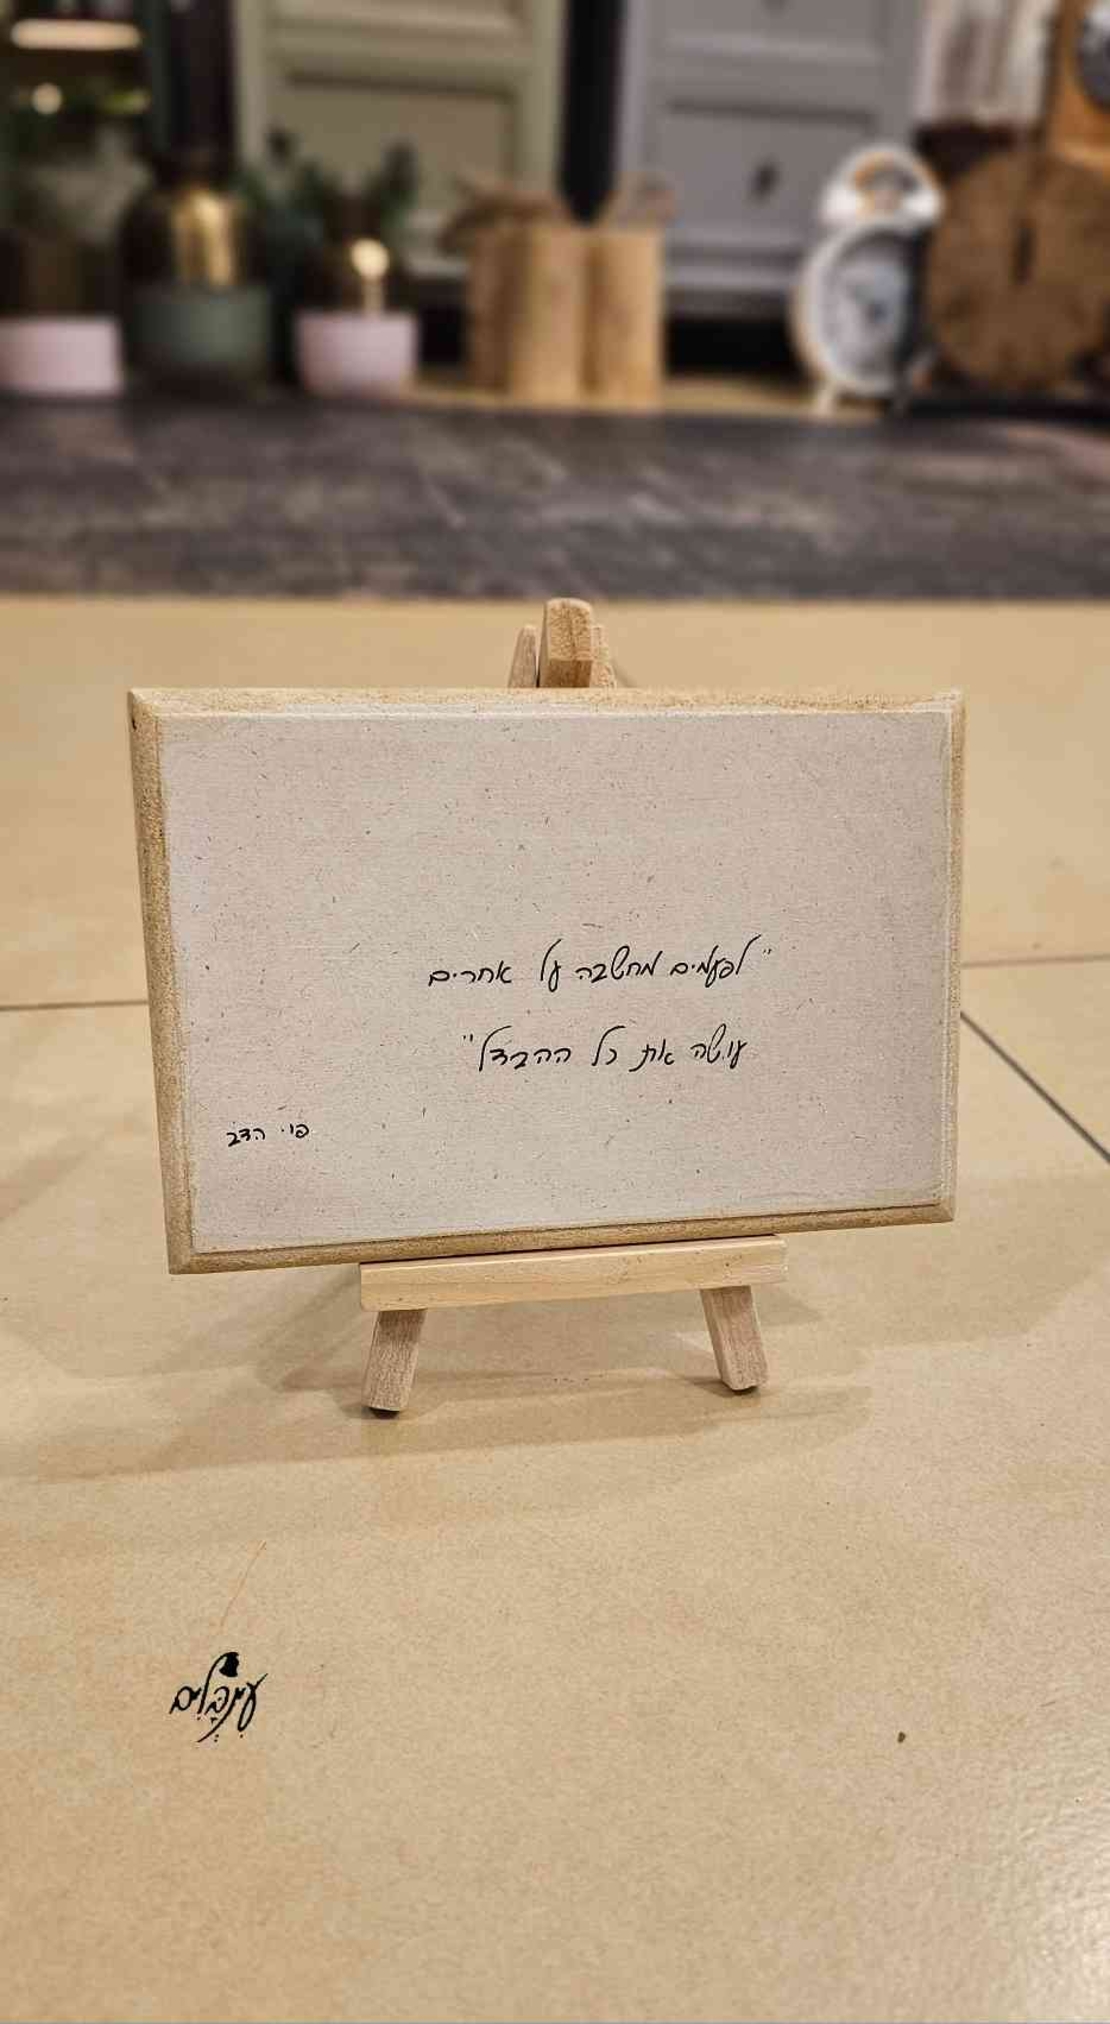 "לפעמים מחשבה על אחרים
עושה את כל ההבדל"
פו הדב